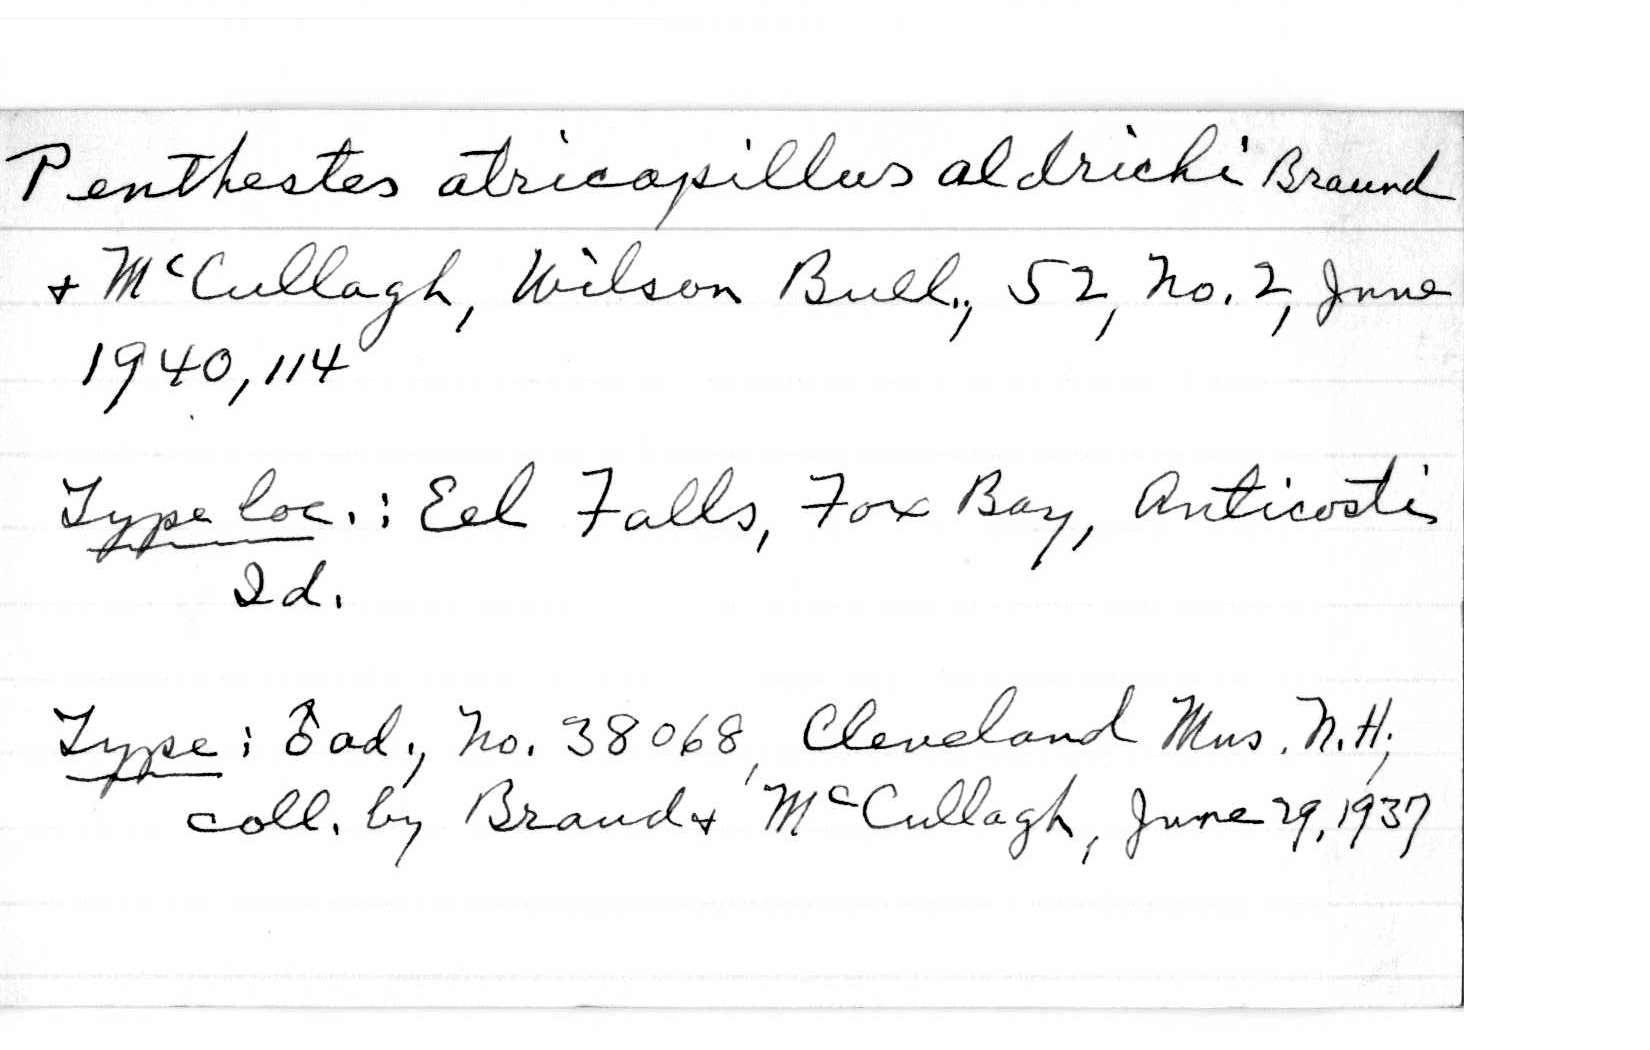 Penthestes atricapillus aldrichi Braund
+ McCullagh, Wilson Bull., 52, No. 2, June
1940, 114
Type loc.: Eel Falls, Fox Bay, Anticosti
Id.
Type: ♂ ad., No. 38068, Cleveland Mus. N.H.;
coll. by Braund + McCullagh, June 29, 1937